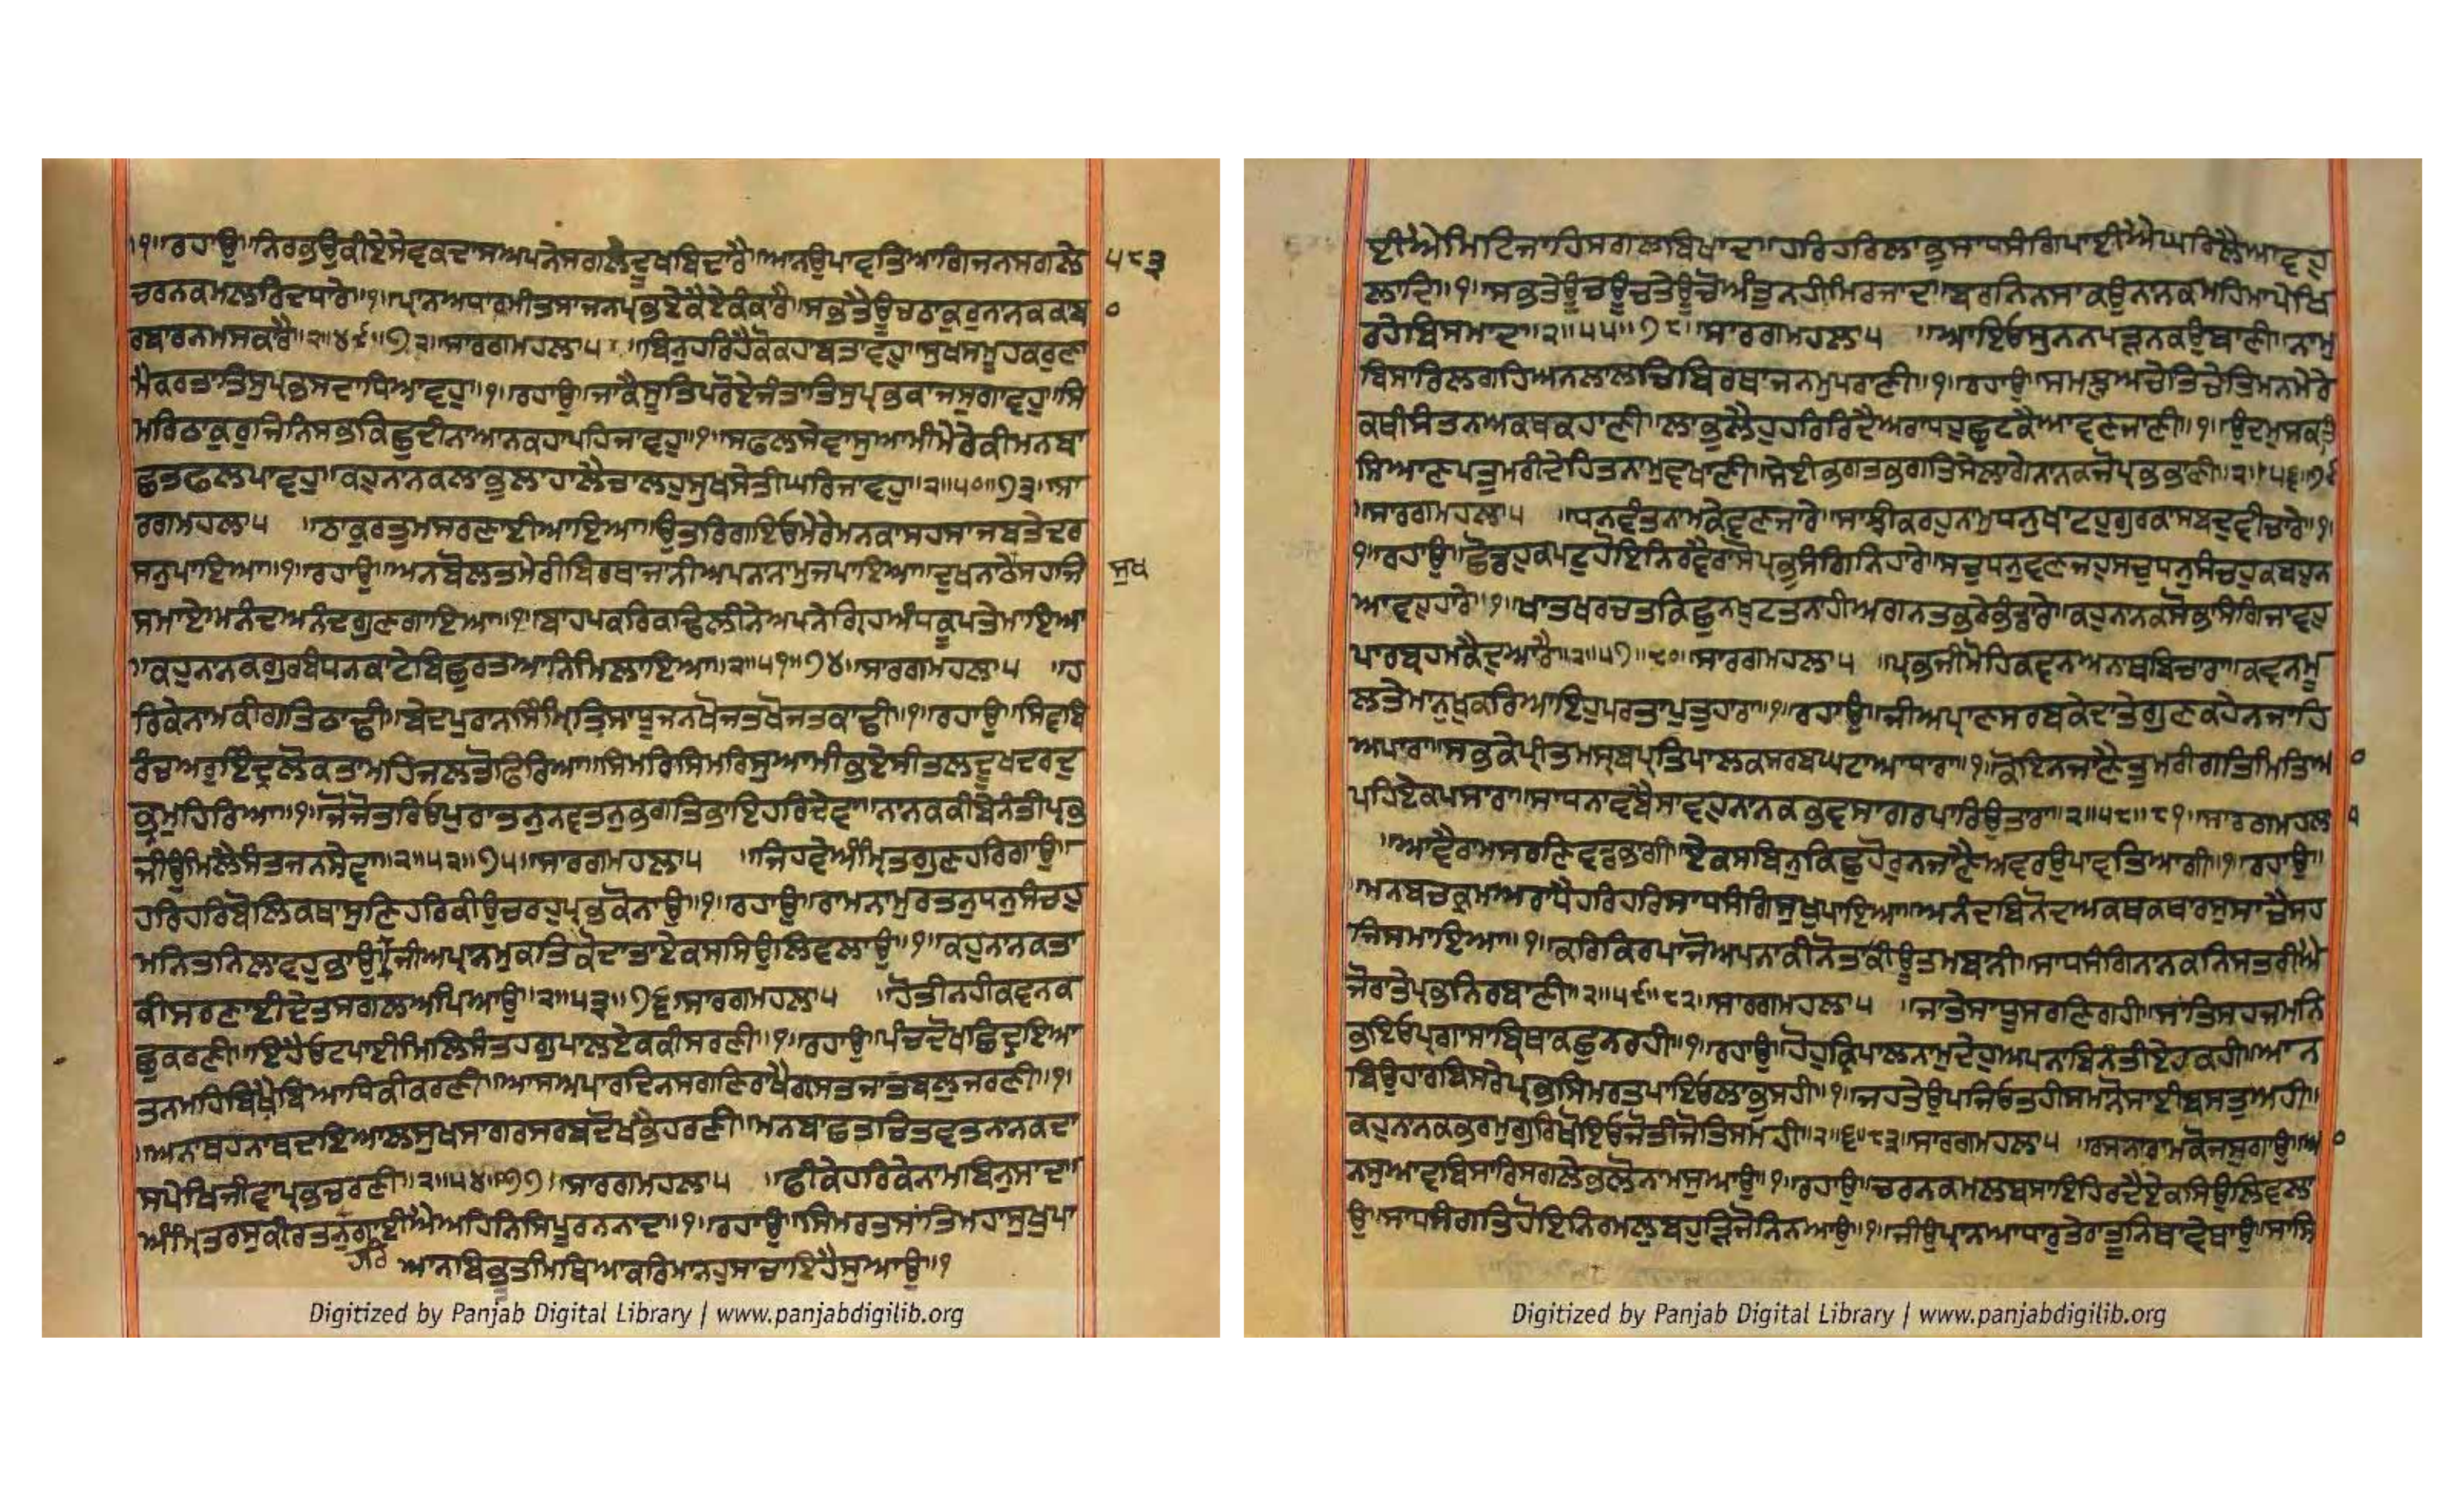 ॥੧॥ਰਹਾਉ॥ਨਿਰਭਉਕੀਏਸੇਵਕਦਾਸਅਪਨੇਸਗਲੇਦੂਖਬਿਦਾਰੈ॥ਆਨਉਪਾਵਤਿਆਗਿਜਨਸਗਲੇ ੫੮੩
ਚਰਨਕਮਲਰਿਦਧਾਰੇ॥੧॥ਪ੍ਰਾਨਅਧਾਰਮੀਤਸਾਜਨਪ੍ਰਭਏਕੈਏਕੰਕਾਰੈ॥ਸਭਤੈਊਚਠਾਕੁਰਨਾਨਕਕਾਬਾ ੦
ਰਬਾਰਨਮਸਕਾਰੈ॥੨॥੪੯॥੭੨॥ਸਾਰਗਮਹਲਾ੫ ॥ਬਿਨੁਹਰਿਹੈਕੋਕਹਾਬਤਾਵਹੁ॥ਸੁਖਸਮੂਹਕਰੁਣਾ
ਮੈਕਰਤਾਤਿਸੁਪ੍ਰਭਸਦਾਧਿਆਵਹੁ॥੧॥ਰਹਾਉ॥ਜਾਕੈਸੂਤਿਪਰੋਏਜੰਤਾਤਿਸੁਪ੍ਰਭਕਾਜਸੁਗਾਵਹੁ॥ਸਿ
ਮਰਿਠਾਕੁਰੁਜਿਨਿਸਭਕਿਛੁਦੀਨਾਆਨਕਹਾਪਹਿਜਾਵਹੁ॥੧॥ਸਫਲਸੇਵਾਸੁਆਮੀਮੇਰੇਕੀਮਨਬਾ
ਛਤਫਲਪਾਵਹੁ॥ਕਹੁਨਾਨਕਲਾਭੁਲਾਹਾਲੈਚਾਲਹੁਸੁਖਸੇਤੀਘਰਿਜਾਵਹੁ॥੨॥੫੦॥੭੩॥ਸਾ
ਰਗਮਹਲਾ੫ ॥ਠਾਕੁਰਤੁਮਸਰਣਾਈਆਇਆ॥ਉਤਰਿਗਇਓਮੇਰੇਮਨਕਾਸਹਸਾਜਬਤੇਦਰ
ਸਨੁਪਾਇਆ॥੧॥ਰਹਾਉ॥ਅਨਬੋਲਤਮੇਰੀਬਿਰਥਾਜਾਨੀਅਪਨਾਨਾਮੁਜਪਾਇਆ॥ਦੁਖਨਾਠੇਸਹਜਿ ਸੁਖ
ਸਮਾਏਅਨੰਦਅਨੰਦਗੁਣਗਾਇਆ॥੧॥ਬਾਹਪਕਰਿਕਢਿਲੀਨੇਅਪਨੇਗ੍ਰਿਹਅੰਧਕੂਪਤੇਮਾਇਆ
॥ਕਹੁਨਾਨਕਗੁਰਬੰਧਨਕਾਟੇਬਿਛੁਰਤਆਨਿਮਿਲਾਇਆ॥੨॥੫੧॥੭੪॥ਸਾਰਗਮਹਲਾ੫ ॥ਹ
ਰਿਕੇਨਾਮਕੀਗਤਿਠਾਢੀ॥ਬੇਦਪੁਰਾਨਸਿੰਮ੍ਰਿਤਿਸਾਧੂਜਨਖੋਜਤਖੋਜਤਕਾਢੀ॥੧॥ਰਹਾਉ॥ਸਿਵਬਿ
ਰੰਚਅਰੁਇੰਦ੍ਰਲੋਕਤਾਮਹਿਜਲਤੌਫਿਰਿਆ॥ਸਿਮਰਿਸਿਮਰਿਸੁਆਮੀਭਏਸੀਤਲਦੂਖਦਰਦੁ
ਭ੍ਰਮੁਹਿਰਿਆ॥੧॥ਜੋਜੋਤਰਿਓਪੁਰਾਤਨੁਨਵਤਨੁਭਗਤਿਭਾਇਹਰਿਦੇਵਾ॥ਨਾਨਕਕੀਬੇਨੰਤੀਪ੍ਰਭ
ਜੀਉਮਿਲੈਸੰਤਜਨਸੇਵਾ॥੨॥੫੨॥੭੫॥ਸਾਰਗਮਹਲਾ੫ ॥ਜਿਹਵੇਅੰਮ੍ਰਿਤਗੁਣਹਰਿਗਾਉ॥
ਹਰਿਹਰਿਬੋਲਿਕਥਾਸੁਣਿਹਰਿਕੀਉਚਰਹੁਪ੍ਰਭਕੋਨਾਉ॥੧॥ਰਹਾਉ॥ਰਾਮਨਾਮੁਰਤਨੁਧਨੁਸੰਚਹੁ
ਮਨਿਤਨਿਲਾਵਹੁਭਾਉ॥ਜੀਅਪ੍ਰਾਨਮੁਕਤਿਕੋਦਾਤਾਏਕਸਸਿਉਲਿਵਲਾਉ॥੧॥ਕਹੁਨਾਨਕਤਾ
ਕੀਸਰਣਾਈਦੇਤਸਗਲਅਪਿਆਉ॥੨॥੫੩॥੭੬॥ਸਾਰਗਮਹਲਾ੫ ॥ਹੋਤੀਨਹੀਕਵਨਕ
ਛੁਕਰਣੀ॥ਇਹੈਓਟਪਾਈਮਿਲਿਸੰਤਹਗੁਪਾਲਏਕਕੀਸਰਣੀ॥੧॥ਰਹਾਉ॥ਪੰਚਦੋਖਛਿਦ੍ਰਇਆ
ਤਨਮਹਿਬਿਖੈਬਿਆਧਿਕੀਕਰਣੀ॥ਆਸਅਪਾਰਦਿਨਸਗਣਿਰਾਖੈਗ੍ਰਸਤਜਾਤਬਲੁਜਰਣੀ॥੧॥
॥ਅਨਾਥਹਨਾਥਦਇਆਲਸੁਖਸਾਗਰਸਰਬਦੋਖਭੈਹਰਣੀ॥ਮਨਬਾਛਤਚਿਤਵਤਨਾਨਕਦਾ
ਸਪੇਖਿਜੀਵਾਪ੍ਰਭਚਰਣੀ॥੨॥੫੪॥੭੭॥ਸਾਰਗਮਹਲਾ੫ ॥ਫੀਕੇਹਰਿਕੇਨਾਮਬਿਨੁਸਾਦਾ
ਅੰਮ੍ਰਿਤਰਸੁਕੀਰਤਨੁਗਾਈਐਅਹਿਨਿਸਿਪੂਰਨਨਾਦ॥੧॥ਰਹਾਉ॥ਸਿਮਰਤਸਾਂਤਿਮਹਾਸੁਖੁਪਾ
ਹਰਿ ਆਨਬਿਭੂਤੀਮਿਥਿਆਕਰਿਮਾਨਹੁਸਾਚਾਇਹੈਸੁਆਉ॥੧
ਈਐਮਿਟਿਜਾਹਿਸਗਲਬਿਖਾਦ॥ਹਰਿਹਰਿਲਾਭੁਸਾਧਸੰਗਿਪਾਈਐਘਰਿਲੈਆਵਹੁ
ਲਾਦਿ॥੧॥ਸਭਤੇਊਚਊਚਤੇਊਚੋਅੰਤੁਨਹੀਮਿਰਜਾਦ॥ਬਰਨਿਨਸਾਕਉਨਾਨਕਮਹਿਮਾਪੇਖਿ
ਰਹੇਬਿਸਮਾਦ॥੨॥੫੫॥੭੮॥ਸਾਰਗਮਹਲਾ੫ ॥ਆਇਓਸੁਨਨਪੜਨਕਉਬਾਣੀ॥ਨਾਮੁ
ਵਿਸਾਰਿਲਗਹਿਅਨਲਾਲਚਿਬਿਰਥਾਜਨਮੁਪਰਾਣੀ॥੧॥ਰਹਾਉ॥ਸਮਝੁਅਚੇਤਿਚੇਤਿਮਨਮੇਰੇ
ਕਥੀਸੰਤਨਅਕਥਕਹਾਣੀ॥ਲਾਭੁਲੈਹੁਹਰਿਰਿਦੈਅਰਾਧਹੁਛੁਟਕੈਆਵਣਜਾਣੀ॥੧॥ਉਦਮੁਸਕਤਿ
ਸਿਆਣਪਤੁਮਰੀਦੇਹਿਤਨਾਮੁਵਖਾਣੀ॥ਸੇਈਭਗਤਭਗਤਿਸੇਲਾਗੇਨਾਨਕਜੋਪ੍ਰਭਭਾਣੀ॥੨॥੫੬॥੭੯
॥ਸਾਰਗਮਹਲਾ੫ ॥ਧਨਵੰਤਨਾਮਕੇਵਣਜਾਰੇ॥ਸਾਂਝੀਕਰਹੁਨਾਮਧਨੁਖਾਟਹੁਗੁਰਕਾਸਬਦੁਵੀਚਾਰੇ॥੧॥
੧॥ਰਹਾਉ॥ਛੋਡਹੁਕਪਟੁਹੋਇਨਿਰਵੈਰਾਸੋਪ੍ਰਭੁਸੰਗਿਨਿਹਾਰੇ॥ਸਚੁਧਨੁਵਣਜਹੁਸਚੁਧਨੁਸੰਚਹੁਕਬਹੂਨ
ਆਵਹੁਹਾਰੇ॥੧॥ਖਾਤਖਰਚਤਕਿਛੁਨਖੁਟਤਨਾਹੀਅਗਨਤਭਰੇਭੰਡਾਰੇ॥ਕਹੁਨਾਨਕਸੋਭਾਸੰਗਿਜਾਵਹੁ
ਪਾਰਬ੍ਰਹਮਕੈਦੁਆਰੈ॥੨॥੫੭॥੮੦॥ਸਾਰਗਮਹਲਾ੫ ॥ਪ੍ਰਭਜੀਮੋਹਿਕਵਨਅਨਾਥਬਿਚਾਰਾ॥ਕਵਨਮੂ
ਲਤੇਮਾਨੁਖੁਕਰਿਆਇਹੁਪਰਤਾਪੁਤੁਹਾਰਾ॥੧॥ਰਹਾਉ॥ਜੀਅਪ੍ਰਾਣਸਰਬਕੇਦਾਤੇਗੁਣਕਹੇਨਜਾਹਿ
ਅਪਾਰਾ॥ਸਭਕੇਪ੍ਰੀਤਮਸ੍ਰਬਪ੍ਰਤਿਪਾਲਕਸਰਬਘਟਾਆਧਾਰਾ॥੧॥ਕੋਇਨਜਾਣੈਤੁਮਰੀਗਤਿਮਿਤਿਆ ੦
ਪਹਿਏਕਪਸਾਰਾ॥ਸਾਧਨਾਵਬੈਸਾਵਹੁਨਾਨਕਭਵਸਾਗਰਪਾਰਿਉਤਾਰਾ॥੨॥੫੮॥੮੧॥ਸਾਰਗਮਹਲਾ ੫
॥ਆਵੈਰਾਮਸਰਣਿਵਡਭਾਗੀ॥ਏਕਸਬਿਨੁਕਿਛੁਹੋਰੁਨਜਾਣੈਅਵਰਉਪਾਵਤਿਆਗੀ॥੧॥ਰਹਾਉ॥
॥ਮਨਬਚਕ੍ਰਮਆਰਾਧੈਹਰਿਹਰਿਸਾਧਸੰਗਿਸੁਖੁਪਾਇਆ॥ਅਨੰਦਬਿਨੋਦਅਕਥਕਥਾਰਸੁਸਾਚੈਸਹ
ਜਿਸਮਾਇਆ॥੧॥ਕਰਿਕਿਰਪਾਜੋਅਪਨਾਕੀਨੋਤਾਕੀਊਤਮਬਾਨੀ॥ਸਾਧਸੰਗਿਨਾਨਕਨਿਸਤਰੀਐ
ਜੋਰਾਤੇਪ੍ਰਭਨਿਰਬਾਣੀ॥੨॥੫੯॥੮੨॥ਸਾਰਗਮਹਲਾ੫ ॥ਜਾਤੇਸਾਧੂਸਰਣਿਗਹੀ॥ਸਾਂਤਿਸਹਜਮਨਿ
ਭਇਓਪ੍ਰਗਾਸਾਬਿਰਥਾਕਛੁਨਰਹੀ॥੧॥ਰਹਾਉ॥ਹੋਹੁਕ੍ਰਿਪਾਲਨਾਮੁਦੇਹੁਅਪਨਾਬਿਨੰਤੀਏਹਕਹੀ॥ਆਨ
ਬਿਉਹਾਰਬਿਸਰੇਪ੍ਰਭਸਿਮਰਤਪਾਇਓਲਾਭੁਸਹੀ॥੧॥ਜਹਤੇਉਪਜਿਓਤਹੀਸਮਾਨੋਸਾਈਬਸਤੁਅਹੀ॥
ਕਹੁਨਾਨਕਭਰਮੁਗੁਰਿਖੋਇਓਜੋਤੀਜੋਤਿਸਮਹੀ॥੨॥੬੦॥੮੩॥ਸਾਰਗਮਹਲਾ੫ ॥ਰਸਨਾਰਾਮਕੋਜਸੁਗਾਉ॥ਆ ੦
ਨਸੁਆਦਬਿਸਾਰਿਸਗਲੇਭਲੋਨਾਮਸੁਆਉ॥੧॥ਰਹਾਉ॥ਚਰਨਕਮਲਬਸਾਇਹਿਰਦੈਏਕਸਿਉਲਿਵਲਾ
ਉ॥ਸਾਧਸੰਗਤਿਹੋਇਨਿਰਮਲੁਬਹੁੜਿਜੋਨਿਨਆਉ॥੧॥ਜੀਉਪ੍ਰਾਨਆਧਾਰੁਤੇਰਾਤੂਨਿਥਾਵੇਥਾਉ॥ਸਾਸਿ
Digitized by Panjab Digital Library | www.panjabdigilib.org
Digitized by Panjab Digital Library | www.panjabdigilib.org